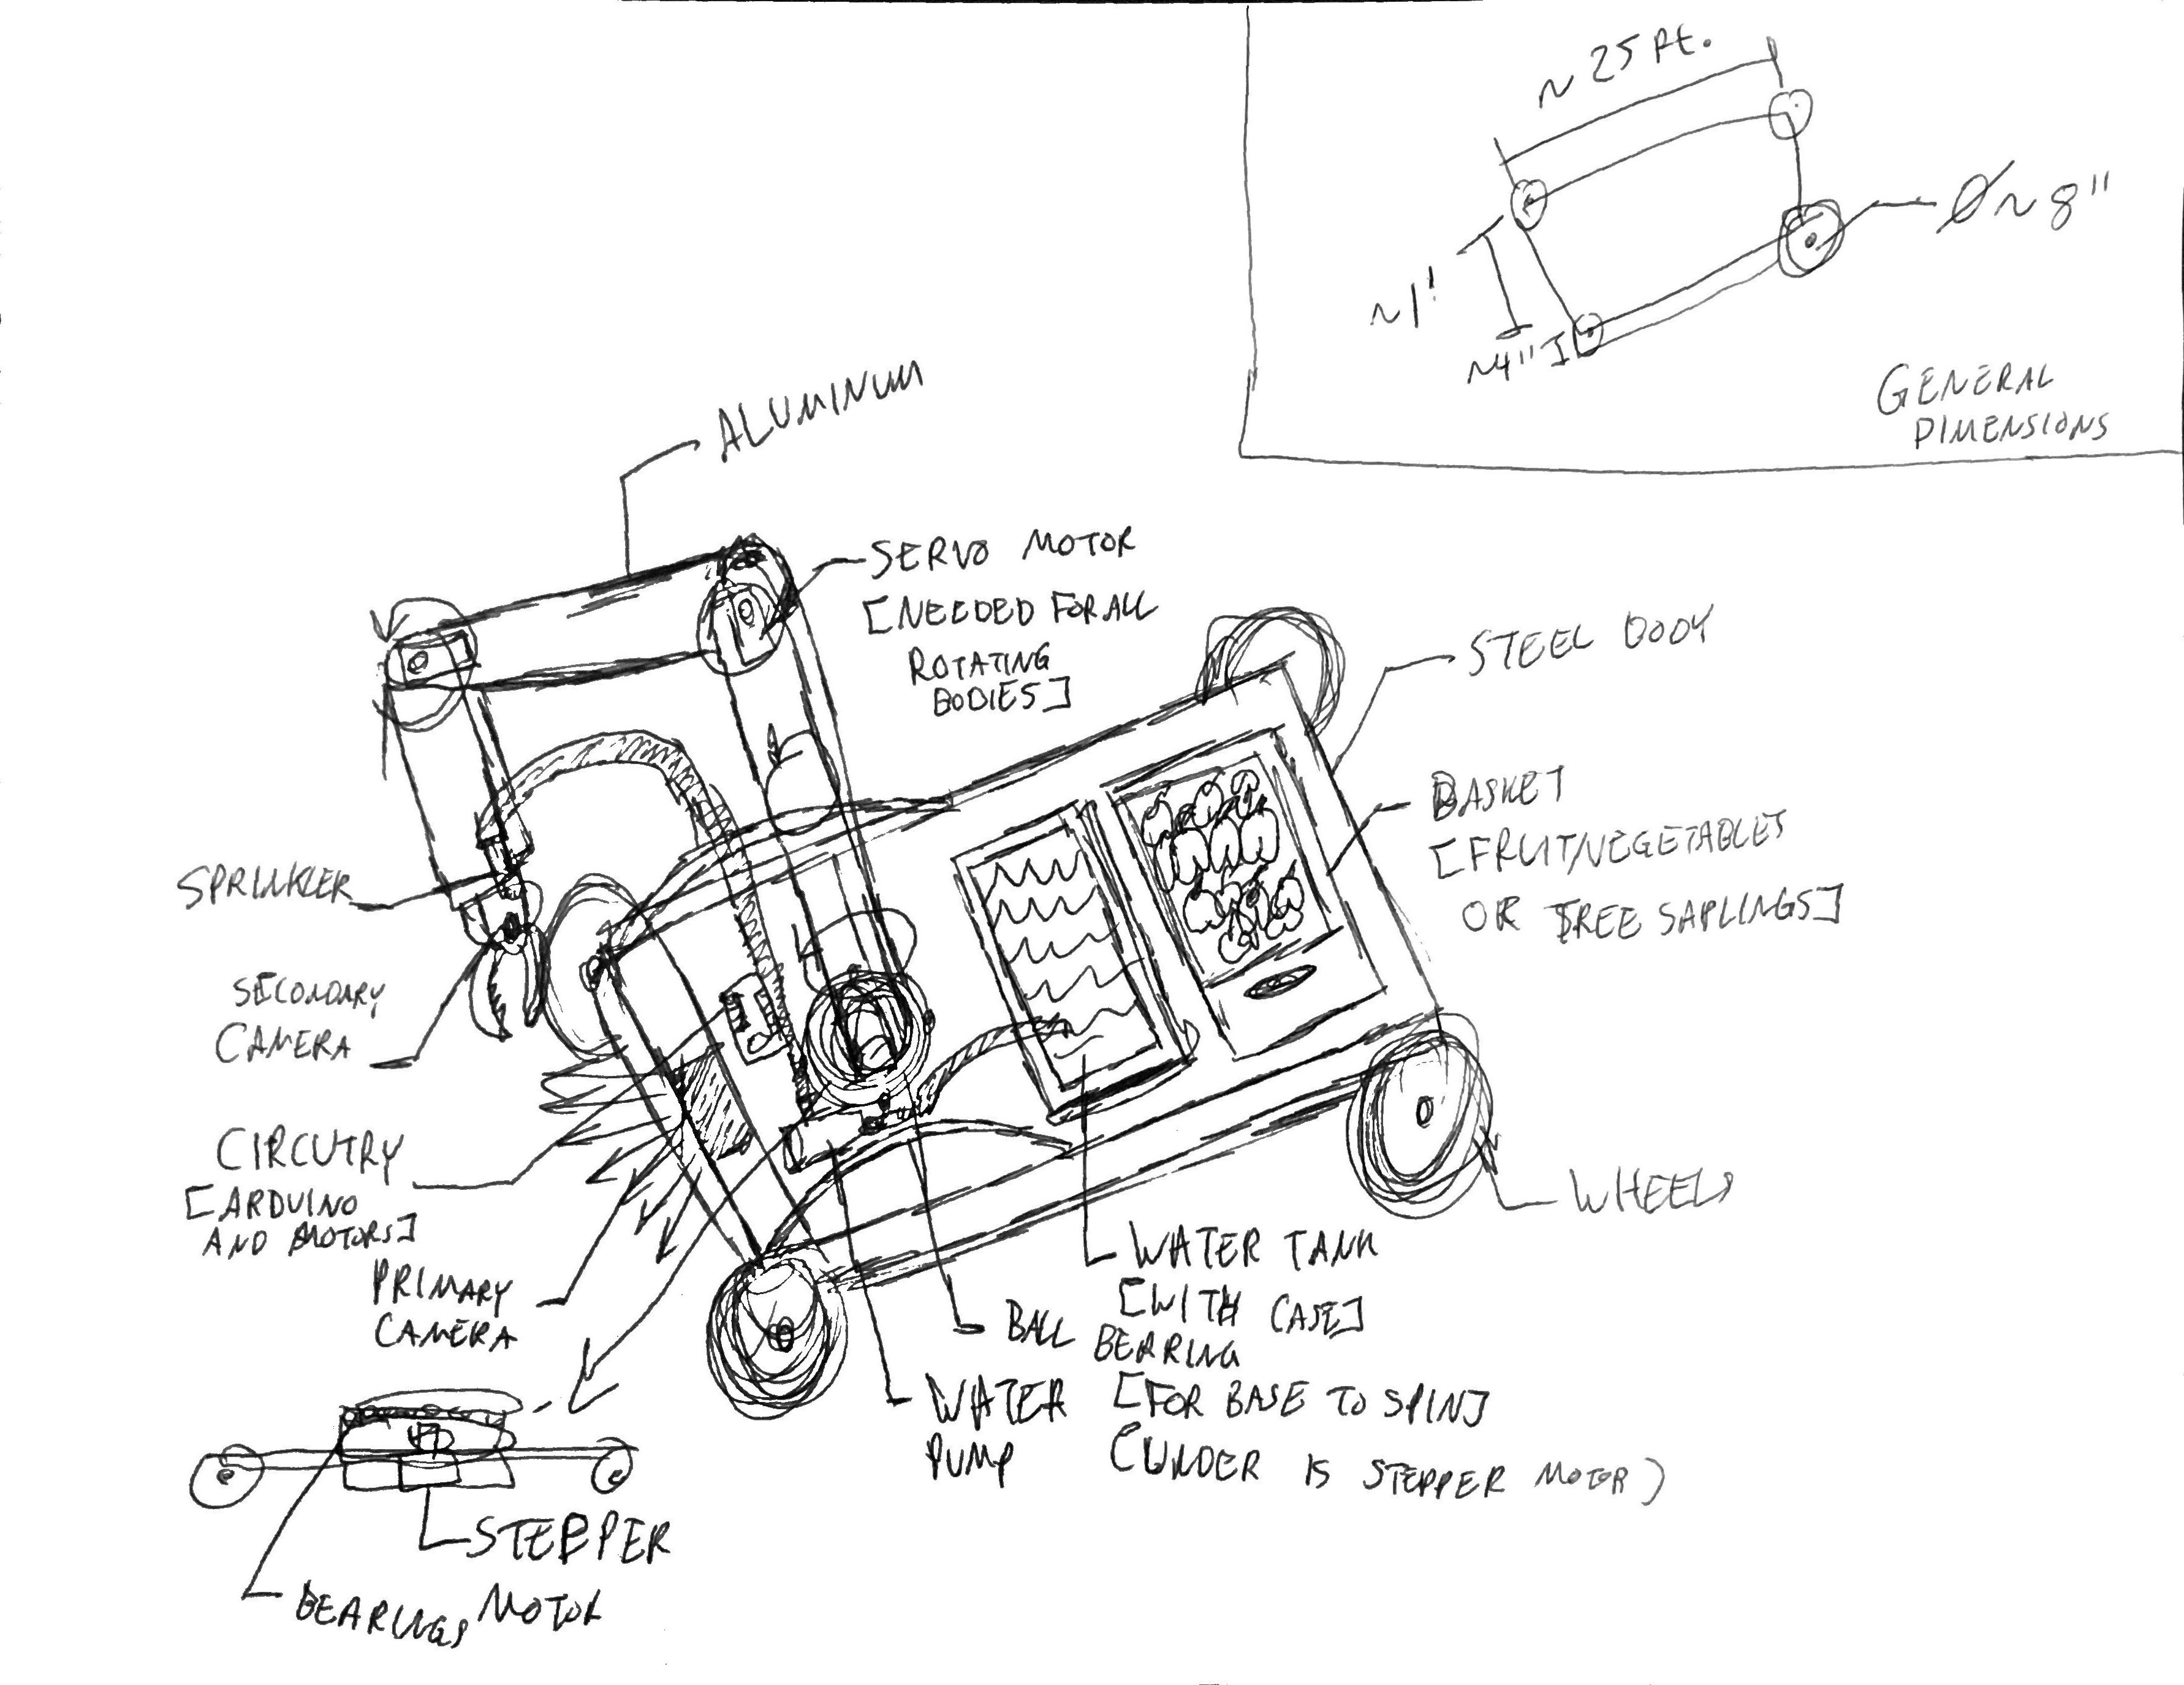 ~ 25 ft.
Ø ~ 8"
~1'
~4"
GENERAL
DIMENSIONS
ALUMINUM
SERVO MOTOR
[NEEDED FOR ALL
ROTATING
BODIES]
STEEL BODY
BASKET
[FRUIT/VEGETABLES
OR TREE SAPLINGS]
SPRINKLER
SECONDARY
CAMERA
CIRCUTRY
[ARDUINO
AND MOTORS]
PRIMARY
CAMERA
WHEELS
WATER TANK
[WITH CASE]
BALL
BEARING
[FOR BASE TO SPIN]
(UNDER IS STEPPER MOTOR)
WATER
PUMP
STEPPER
MOTOR
BEARINGS